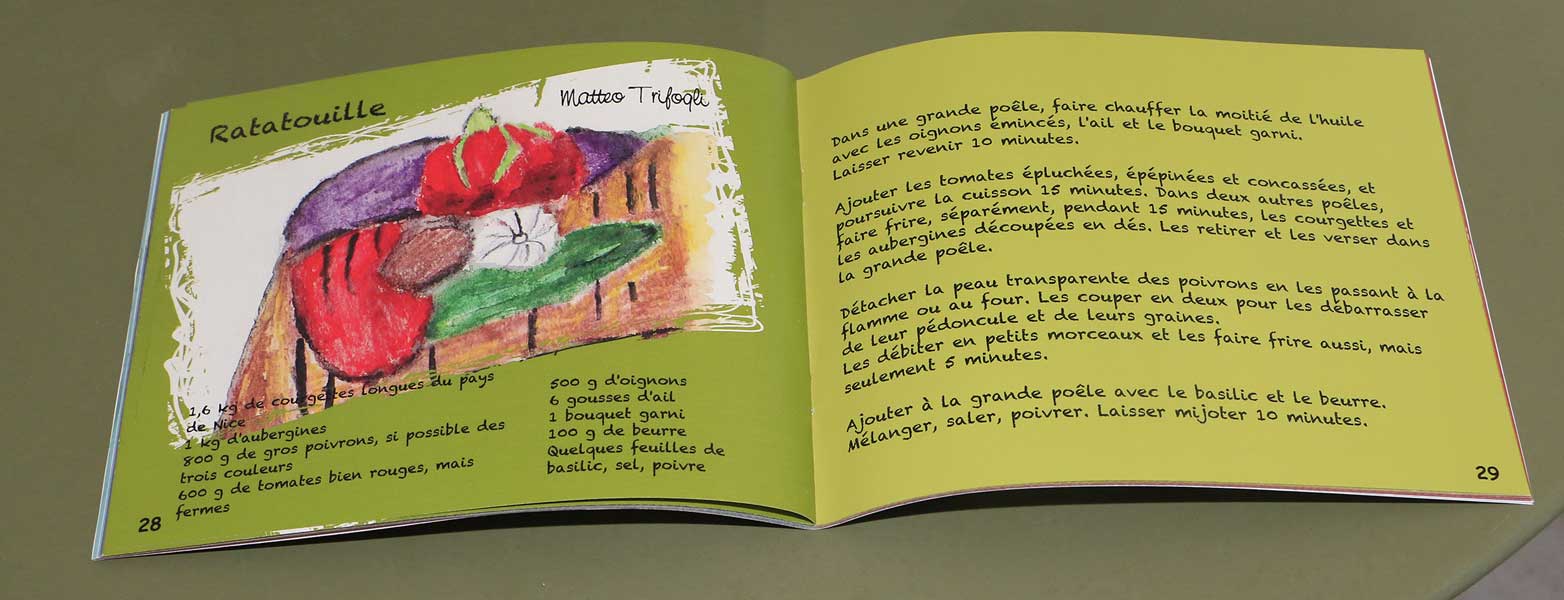 Ratatouille
Matteo Trifogli
1,6 kg de courgettes longues du pays
de Nice
1 kg d'aubergines
800 g de gros poivrons, si possible des
trois couleurs
600 g de tomates bien rouges, mais
fermes
500 g d'oignons
6 gousses d'ail
1 bouquet garni
100 g de beurre
Quelques feuilles de
basilic, sel, poivre
28
Dans une grande poêle, faire chauffer la moitié de l'huile
avec les oignons émincés, l'ail et le bouquet garni.
Laisser revenir 10 minutes.
Ajouter les tomates épluchées, épépinées et concassées, et
poursuivre la cuisson 15 minutes. Dans deux autres poêles,
faire frire, séparément, pendant 15 minutes, les courgettes et
les aubergines découpées en dés. Les retirer et les verser dans
la grande poêle.
Détacher la peau transparente des poivrons en les passant à la
flamme ou au four. Les couper en deux pour les débarrasser
de leur pédoncule et de leurs graines.
Les débiter en petits morceaux et les faire frire aussi, mais
seulement 5 minutes.
Ajouter à la grande poêle avec le basilic et le beurre.
Mélanger, saler, poivrer. Laisser mijoter 10 minutes.
29